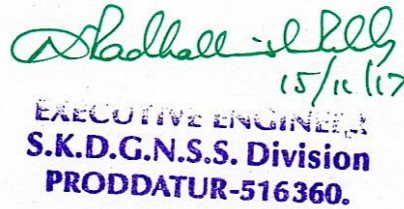 15/11/17
EXECUTIVE ENGINEER
S.K.D.G.N.S.S. Division
PRODDATUR-516360.